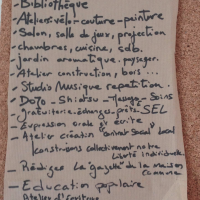 - Bibliothèque
- Atelier: vélo - couture - peinture
- Salon, salle de jeux, projection
- chambres, cuisine, sdb.
- jardin aromatique, paysager.
- Atelier construction, bois...
- Studio Musique repetition.
- Dojo - Shiatsu - Massage - Soins
- gratuiterie, échanges, prêts SEL
- Expression orale et écrite
- Atelier création Contrat Social Local
Construisons collectivement notre
Liberté individuelle
- Rédiger la gazette de la maison
commune
- Education populaire
Atelier d'écriture